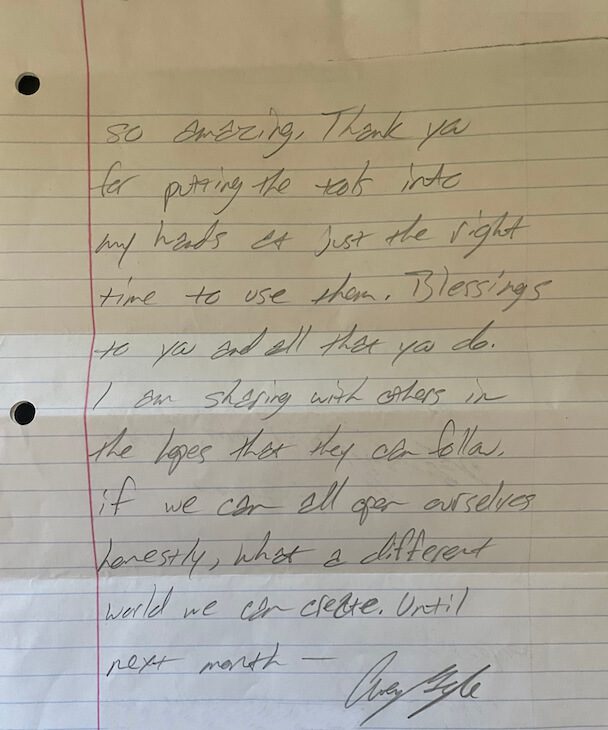 so amazing. Thank you
for putting the tools into
my hands at just the right
time to use them. Blessings
to you and all that you do.
I am sharing with others in
the hopes that they can follow.
if we can all open ourselves
honestly, what a different
world we can create. Until
next month —